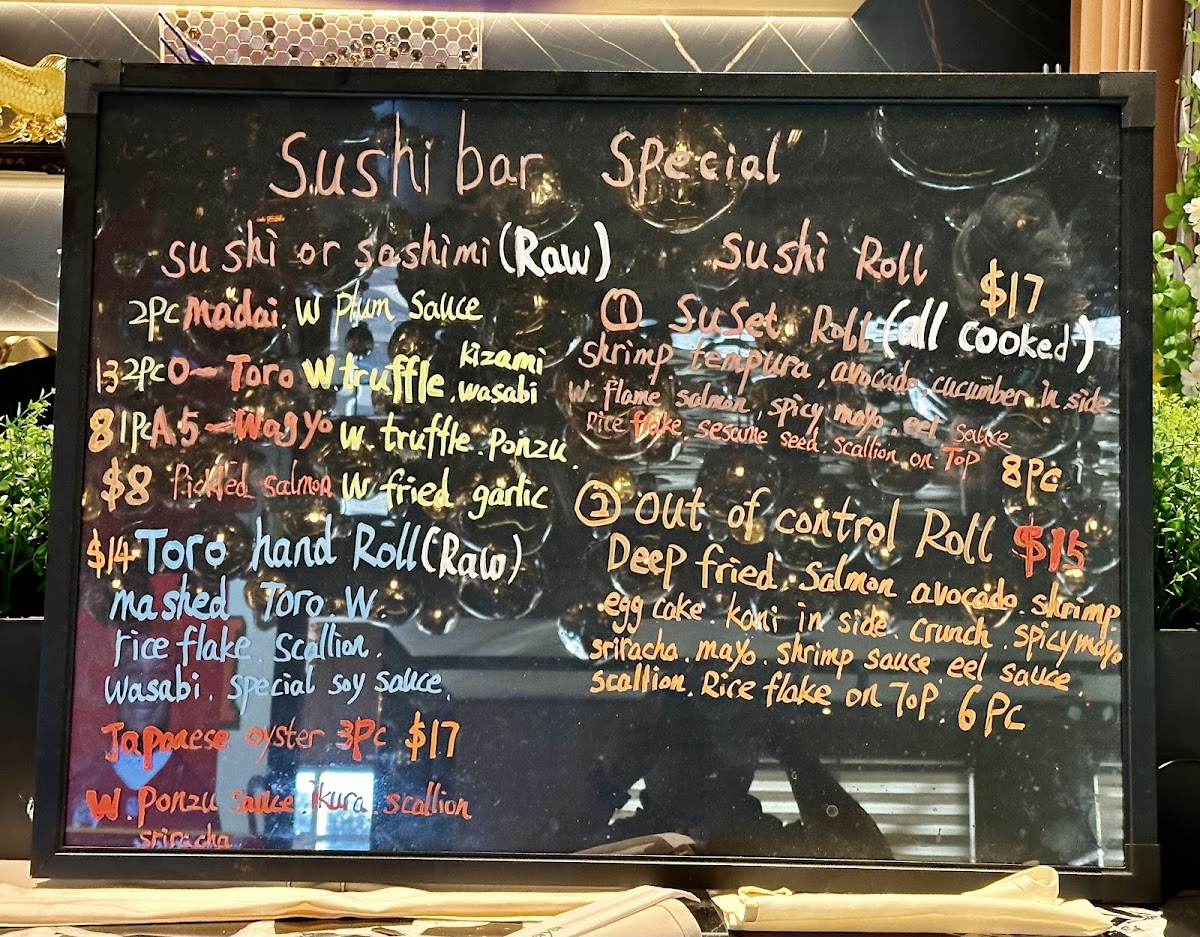 Sushi bar Special
sushi or sashimi (Raw)
2pc Madai. W Plum Sauce
13 2pc O-Toro W. truffle. kizami wasabi
8 1pc A5-Wagyo W. truffle. Ponzu.
$8 Pickled salmon W fried garlic
$14 Toro hand Roll (Raw)
mashed Toro. W.
rice flake. Scallion.
Wasabi. Special soy sauce.
Japanese oyster 3Pc $17
W. Ponzu sauce. ikura. scallion
sriracha
Sushi Roll
$17
① SuSet Roll (all cooked)
shrimp tempura, avocado. cucumber. in side
W. flame salmon, spicy mayo. eel sauce
Rice flake. sesame seed. scallion on ToP
8Pc
② out of control Roll $15
Deep fried. Salmon. avocado. shrimp
egg cake. kani in side. crunch. spicy mayo
sriracha. mayo. shrimp sauce. eel sauce.
scallion. Rice flake on ToP. 6 Pc